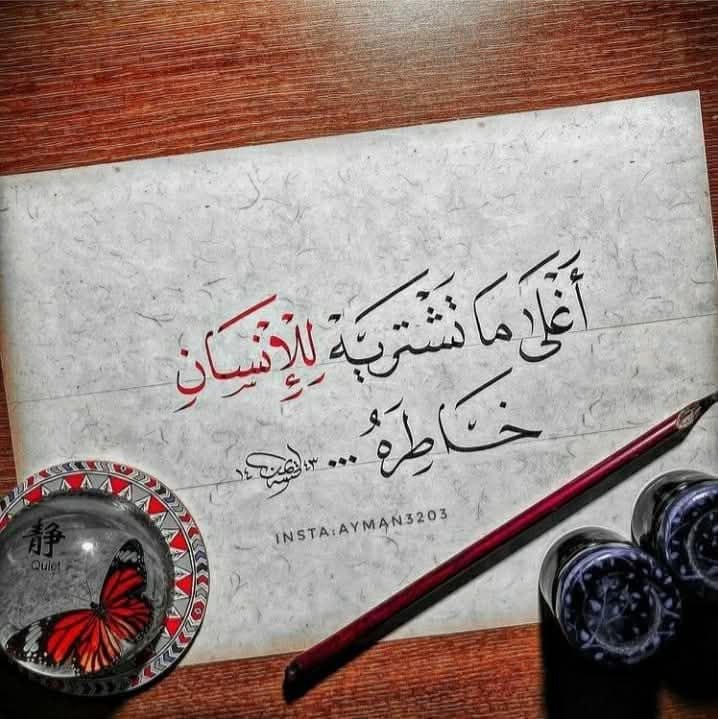 أَغْلَىٰ مَا تَشْتَرِيَهْ لِلْإِنْسَانِ
خَاطِرَهُ ...
INSTA:AYMAN3203
静
Quiet